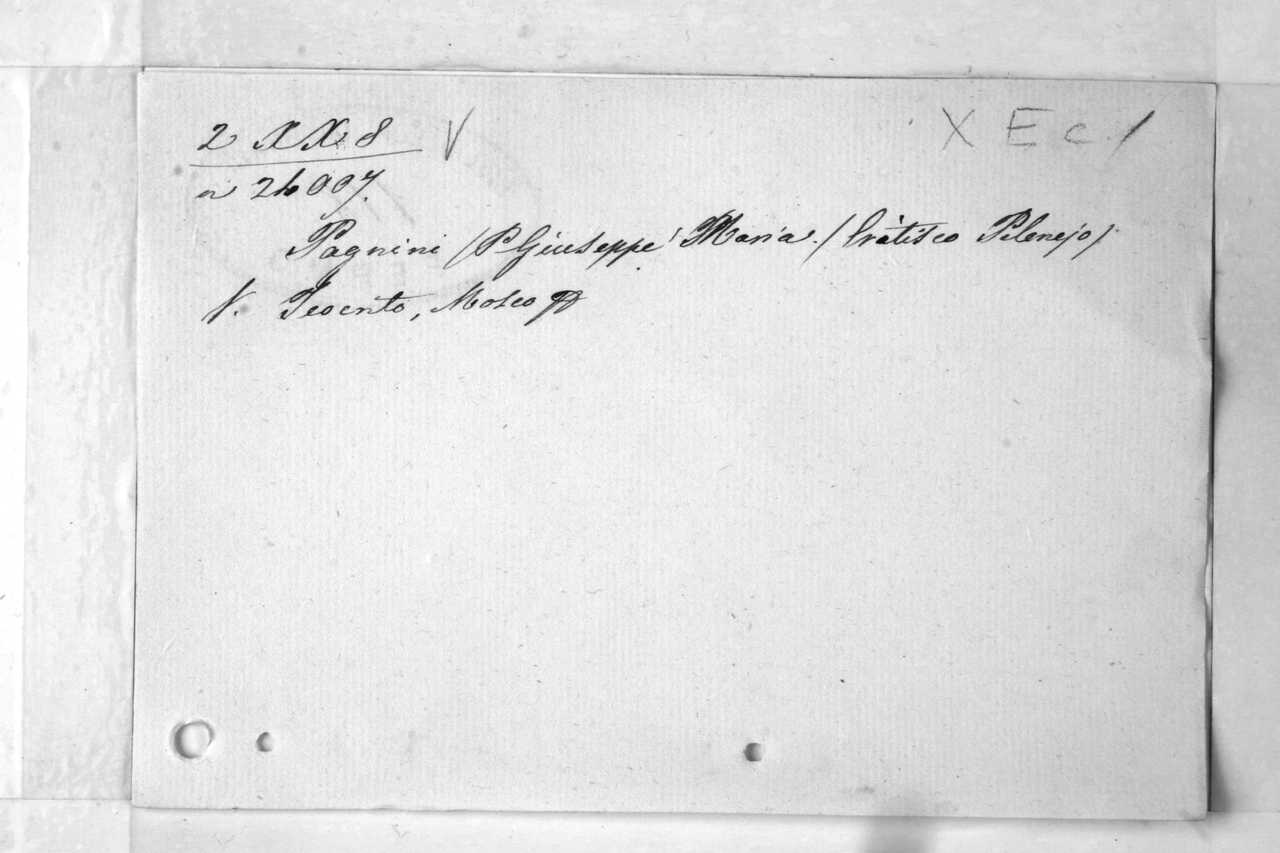 2 XX 8 V X E c. /
n 24007.
Pagnini (P. Giuseppe Maria) (Eratisco Pilenejo)
V. Teocrito, Mosco